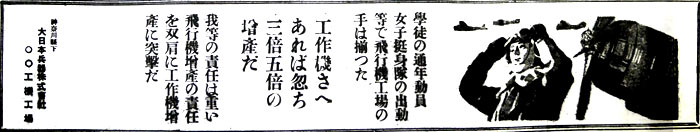 學徒の通年動員
女子挺身隊の出動
等で飛行機工場の
手は揃つた
工作機さへ
あれば忽ち
三倍五倍の
增產だ
我等の責任は重い
飛行機增產の責任
を双肩に工作機增
產に突擊だ
神奈川縣下
大日本兵器株式會社
〇〇工機工場